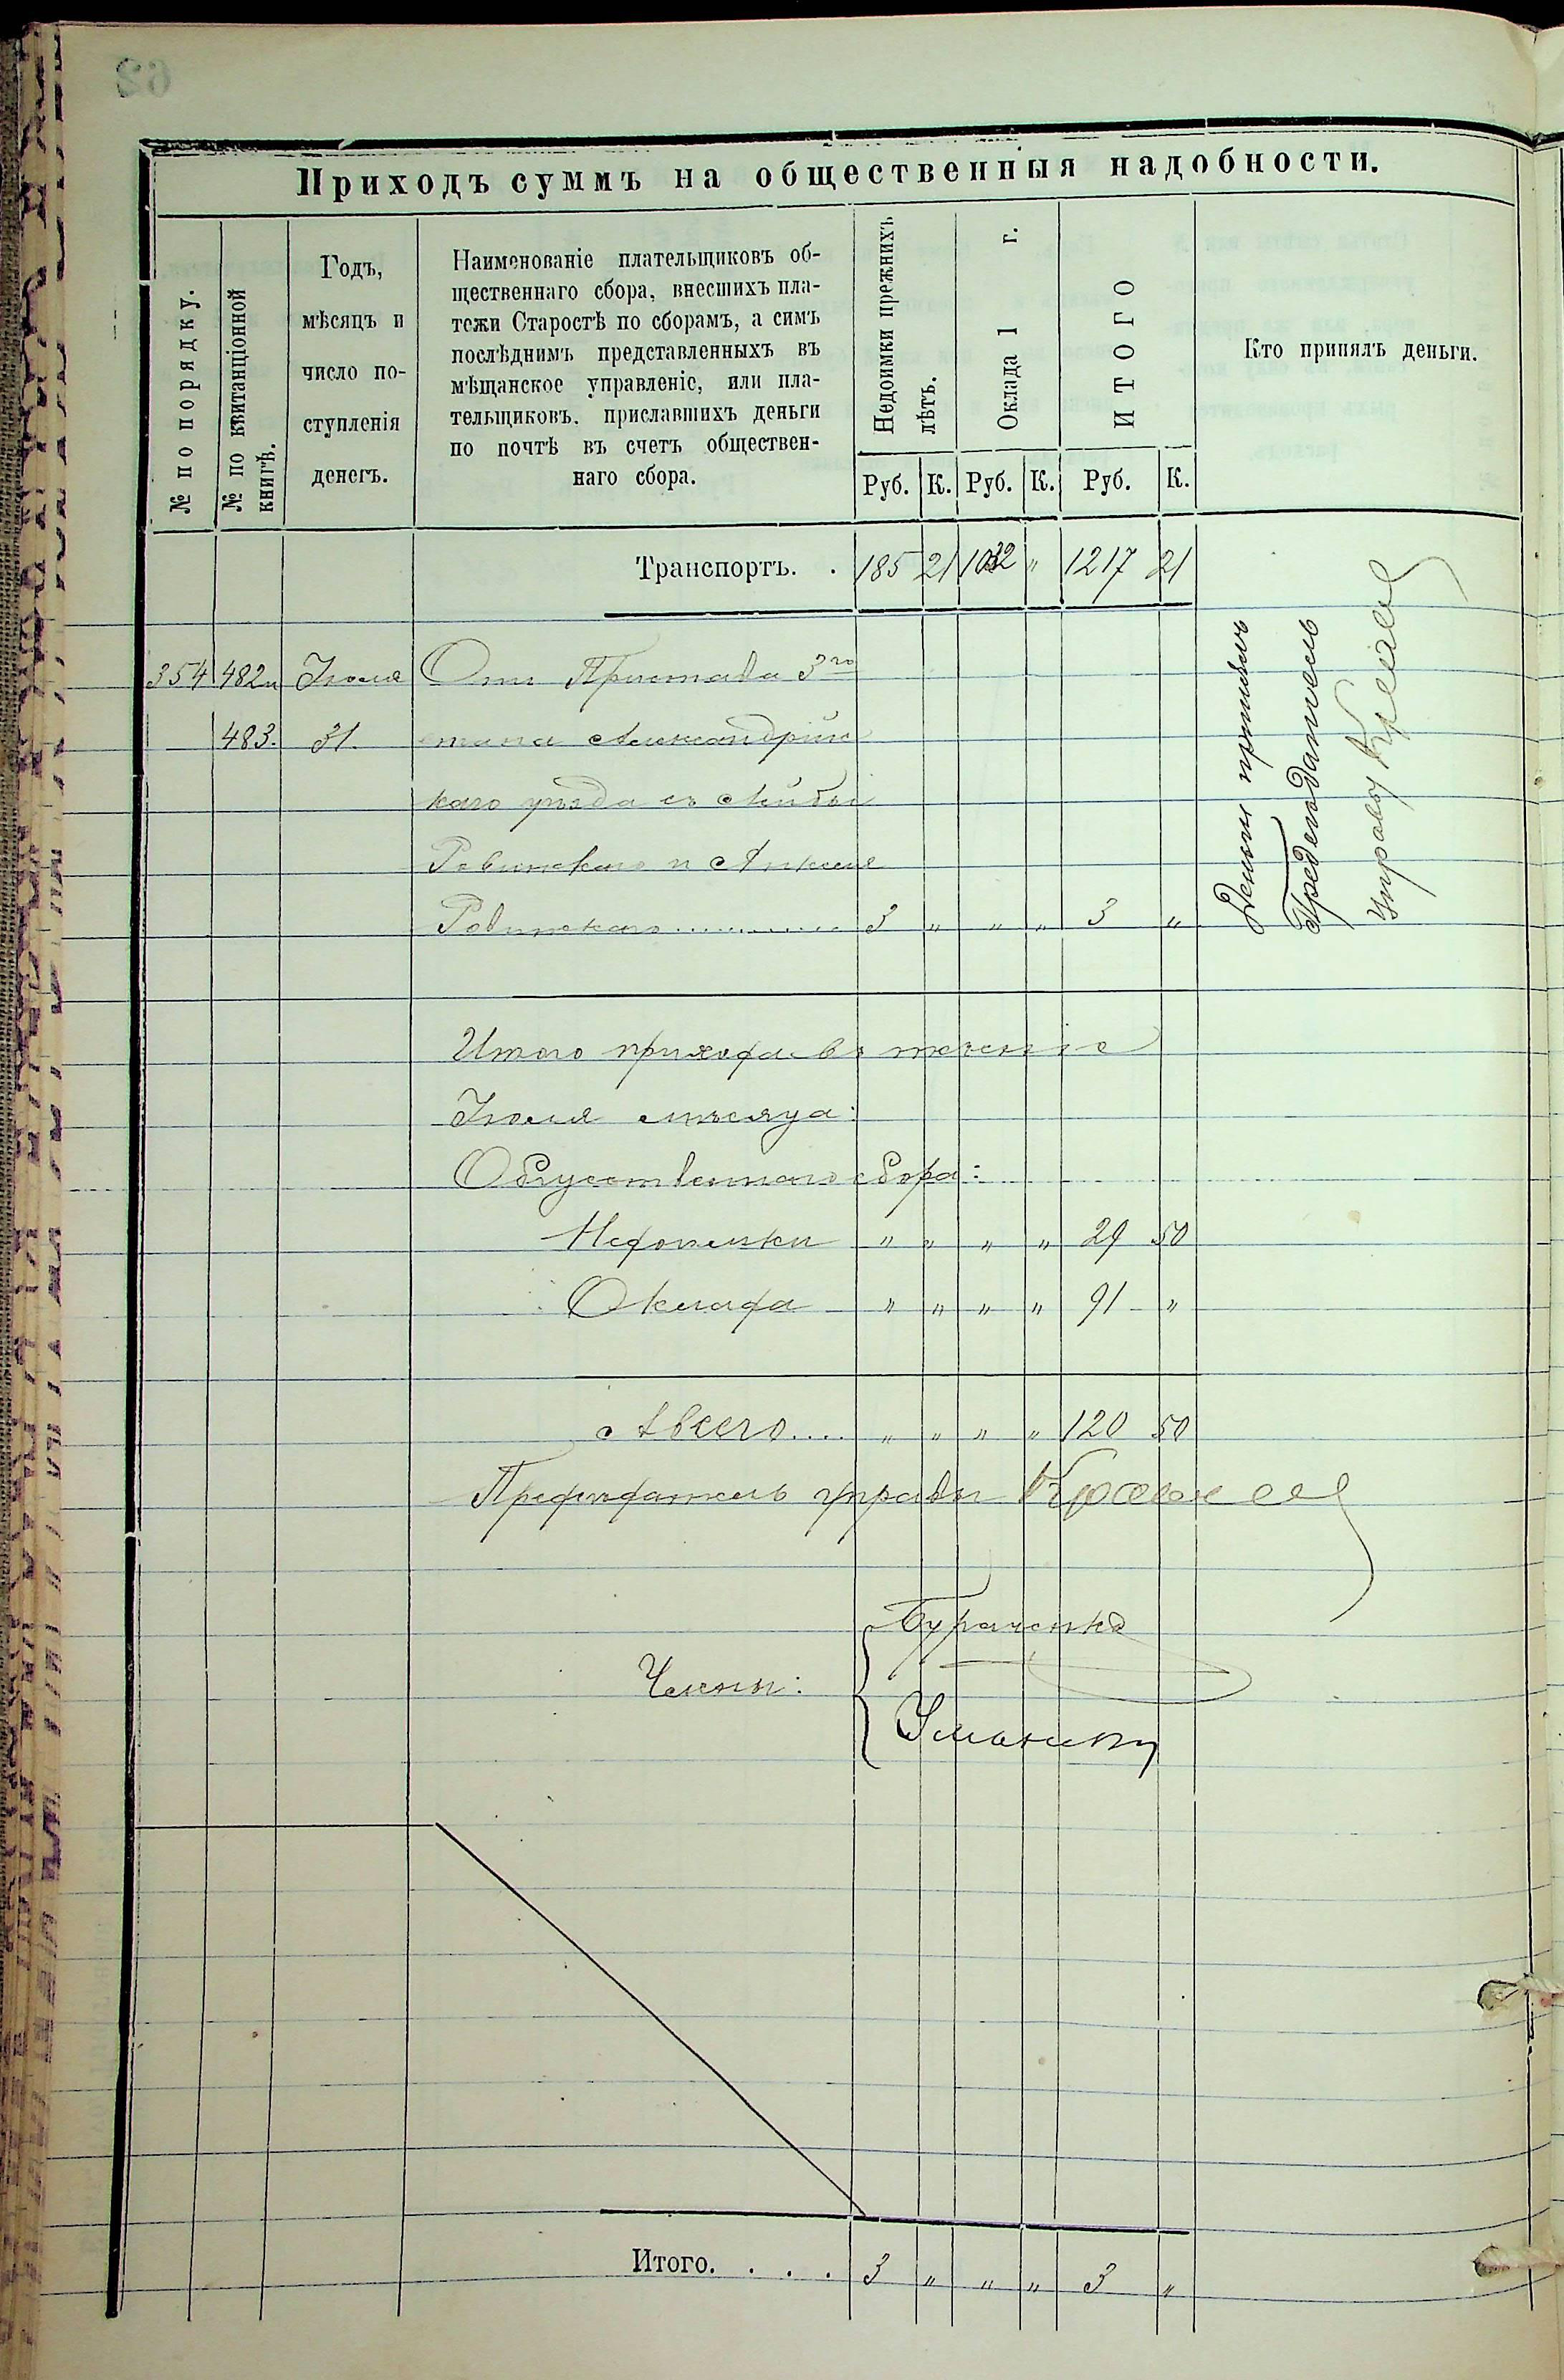 Приходъ суммъ на общественныя надобности.
№ по порядку.
№ по квитанціонной
книгѣ.
Годъ,
мѣсяцъ и
число по-
ступленія
денегъ.
Наименованіе плательщиковъ об-
щественнаго сбора, внесшихъ пла-
тежи Старостѣ по сборамъ, а симъ
послѣднимъ представленныхъ въ
мѣщанское управленіе, или пла-
тельщиковъ. приславшихъ деньги
по почтѣ въ счетъ обществен-
наго сбора.
Недоимки прежнихъ
лѣтъ.
Оклада 1 г.
ИТОГО
Кто принялъ деньги.
Руб. К. Руб. К. Руб. К.
Транспортъ. . 185 21 1032 " 1217 21
354 482и Іюля Отъ Пристава 3го
483. 31. стана Александрійс
каго уѣзда съ Лейбы
Ровинскаго и
Ровинскаго 3 " " " 3 "
Деньги принялъ
Предсѣдатель
Управы
Итого прихода въ теченіе
Іюля мѣсяца:
Общественнаго сбора:
Недоимки " " " " 29 50
Оклада " " " " 91 "
А всего.... " " " " 120 50
Предсѣдатель управы
Члены:
Бураченко
Уманскій
Итого. . . . 3 " " " 3 "